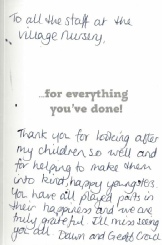 To all the staff at the
Village Nursery,
...for everything
you've done!
Thank you for looking after
my children so well and
for helping to make them
into kind, happy youngsters.
You have all played parts in
their happiness and we are
truly grateful. I'll miss seeing
you all. Dawn and Geoff